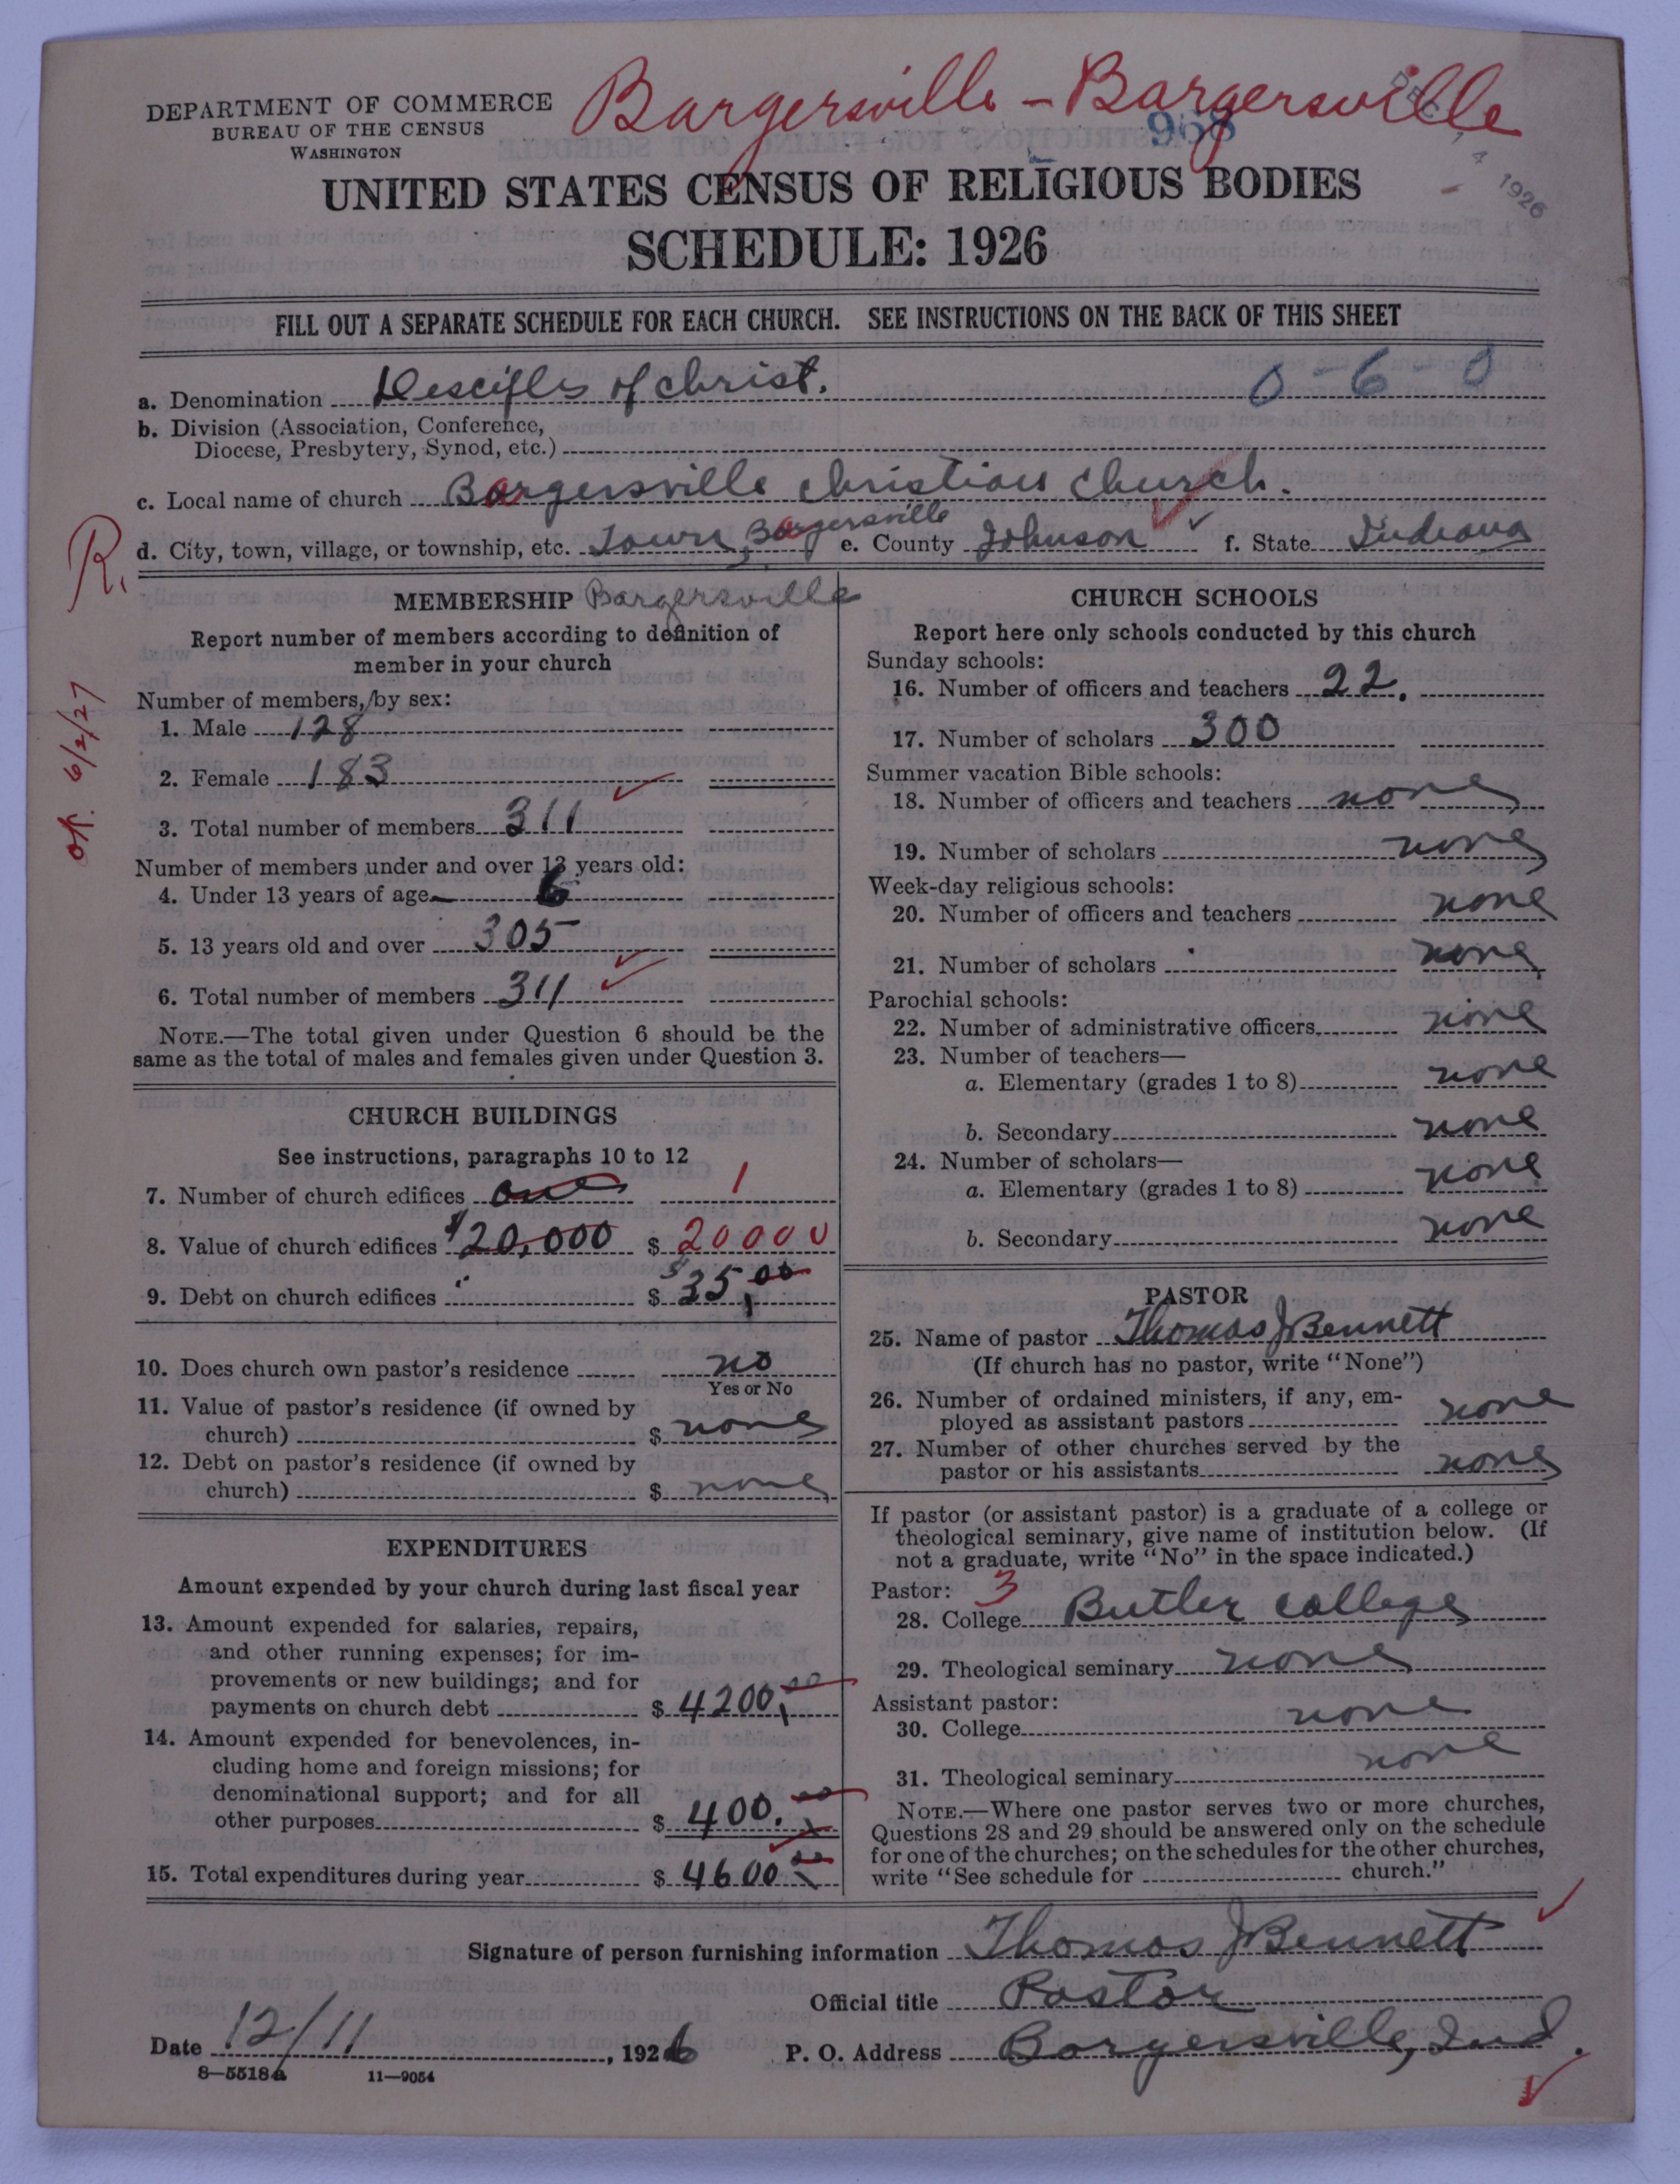 Bargersville - Bargersville
DEPARTMENT OF COMMERCE
BUREAU OF THE CENSUS
WASHINGTON
968
DEC 14 1926
UNITED STATES CENSUS OF RELIGIOUS BODIES
SCHEDULE: 1926
FILL OUT A SEPARATE SCHEDULE FOR EACH CHURCH. SEE INSTRUCTIONS ON THE BACK OF THIS SHEET
a. Denomination Desciples of Christ. 0-6-0
b. Division (Association, Conference,
Diocese, Presbytery, Synod, etc.)
c. Local name of church Bargersville Christian Church.
d. City, town, village, or township, etc. Town, Bargersville e. County Johnson f. State Indiana
R.
ok. 6/2/27
MEMBERSHIP Bargersville
Report number of members according to definition of
member in your church
Number of members, by sex:
1. Male 128
2. Female 183
3. Total number of members 311
Number of members under and over 13 years old:
4. Under 13 years of age 6
5. 13 years old and over 305
6. Total number of members 311
NOTE.—The total given under Question 6 should be the
same as the total of males and females given under Question 3.
CHURCH BUILDINGS
See instructions, paragraphs 10 to 12
7. Number of church edifices one 1
8. Value of church edifices $20,000 $ 20000
9. Debt on church edifices $ $35.00
10. Does church own pastor's residence no
Yes or No
11. Value of pastor's residence (if owned by
church) $ none
12. Debt on pastor's residence (if owned by
church) $ none
EXPENDITURES
Amount expended by your church during last fiscal year
13. Amount expended for salaries, repairs,
and other running expenses; for im-
provements or new buildings; and for
payments on church debt $ 4200.00
14. Amount expended for benevolences, in-
cluding home and foreign missions; for
denominational support; and for all
other purposes $ 400.00
15. Total expenditures during year $ 4600.00
CHURCH SCHOOLS
Report here only schools conducted by this church
Sunday schools:
16. Number of officers and teachers 22.
17. Number of scholars 300
Summer vacation Bible schools:
18. Number of officers and teachers none
19. Number of scholars none
Week-day religious schools:
20. Number of officers and teachers none
21. Number of scholars none
Parochial schools:
22. Number of administrative officers none
23. Number of teachers—
a. Elementary (grades 1 to 8) none
b. Secondary none
24. Number of scholars—
a. Elementary (grades 1 to 8) none
b. Secondary none
PASTOR
25. Name of pastor Thomas J Bennett
(If church has no pastor, write "None")
26. Number of ordained ministers, if any, em-
ployed as assistant pastors none
27. Number of other churches served by the
pastor or his assistants none
If pastor (or assistant pastor) is a graduate of a college or
theological seminary, give name of institution below. (If
not a graduate, write "No" in the space indicated.)
Pastor: 3
28. College Butler College
29. Theological seminary none
Assistant pastor:
30. College none
31. Theological seminary none
NOTE.—Where one pastor serves two or more churches,
Questions 28 and 29 should be answered only on the schedule
for one of the churches; on the schedules for the other churches,
write "See schedule for church."
Signature of person furnishing information Thomas J Bennett
Official title Pastor
Date 12/11, 1926 P. O. Address Bargersville, Ind.
8—5518a 11—9054